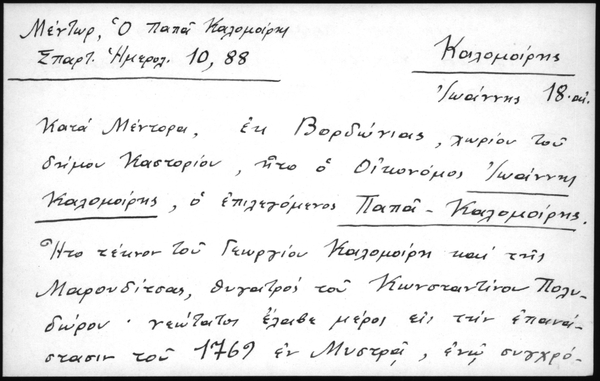 Μέντωρ, Ὁ Παπᾶ Καλομοίρης
Σπαρτ. Ἡμερολ. 10, 88
Καλομοίρης
Ἰωάννης 18. αἰ.
Κατά Μέντορα, ἐκ Βορδώνιας, χωρίον τοῦ
δήμου Καστορίου, ἦτο ὁ Οἰκονόμος Ἰωάννης
Καλομοίρης, ὁ ἐπιλεγόμενος Παπᾶ-Καλομοίρης.
Ἦτο τέκνον τοῦ Γεωργίου Καλομοίρη καί τῆς
Μαρουδίτσας, θυγατρός τοῦ Κωνσταντίνου Πολυ-
δώρου · νεώτατος ἔλαβε μέρος εἰς τήν ἐπανά-
στασιν τοῦ 1769 ἐν Μυστρᾷ, ἐνῷ συγχρό-